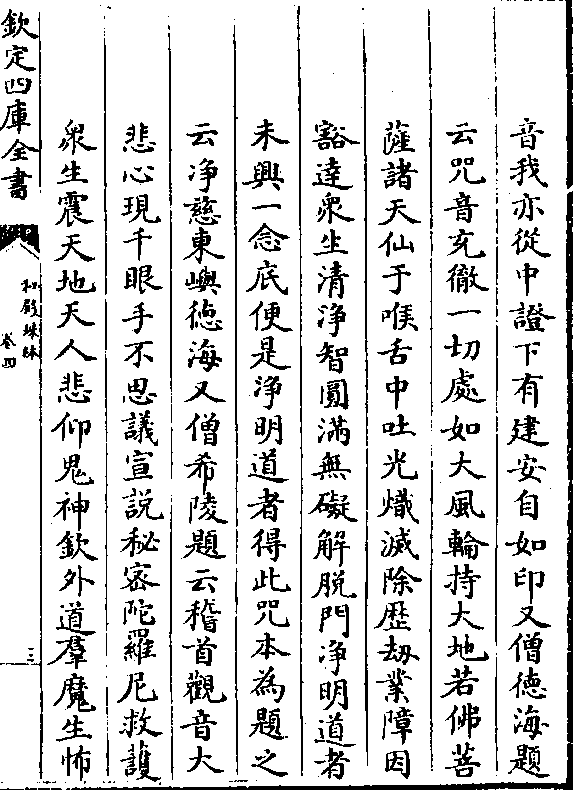 音我亦從中證下有建安自如印又僧徳海題
云咒音充徹一切處如大風輪持大地若佛菩
薩諸天仙于喉舌中吐光熾滅除歴劫業障因
豁逹衆生清浄智圓滿無礙解脱門浄明道者
未興一念底便是浄明道者得此咒本為題之
云浄慈東嶼徳海又僧希陵題云稽首觀音大
悲心現千眼手不思議宣説秘宻陀羅尼救護
衆生震天地天人悲仰鬼神欽外道羣魔生怖
欽定四庫全書
卷四